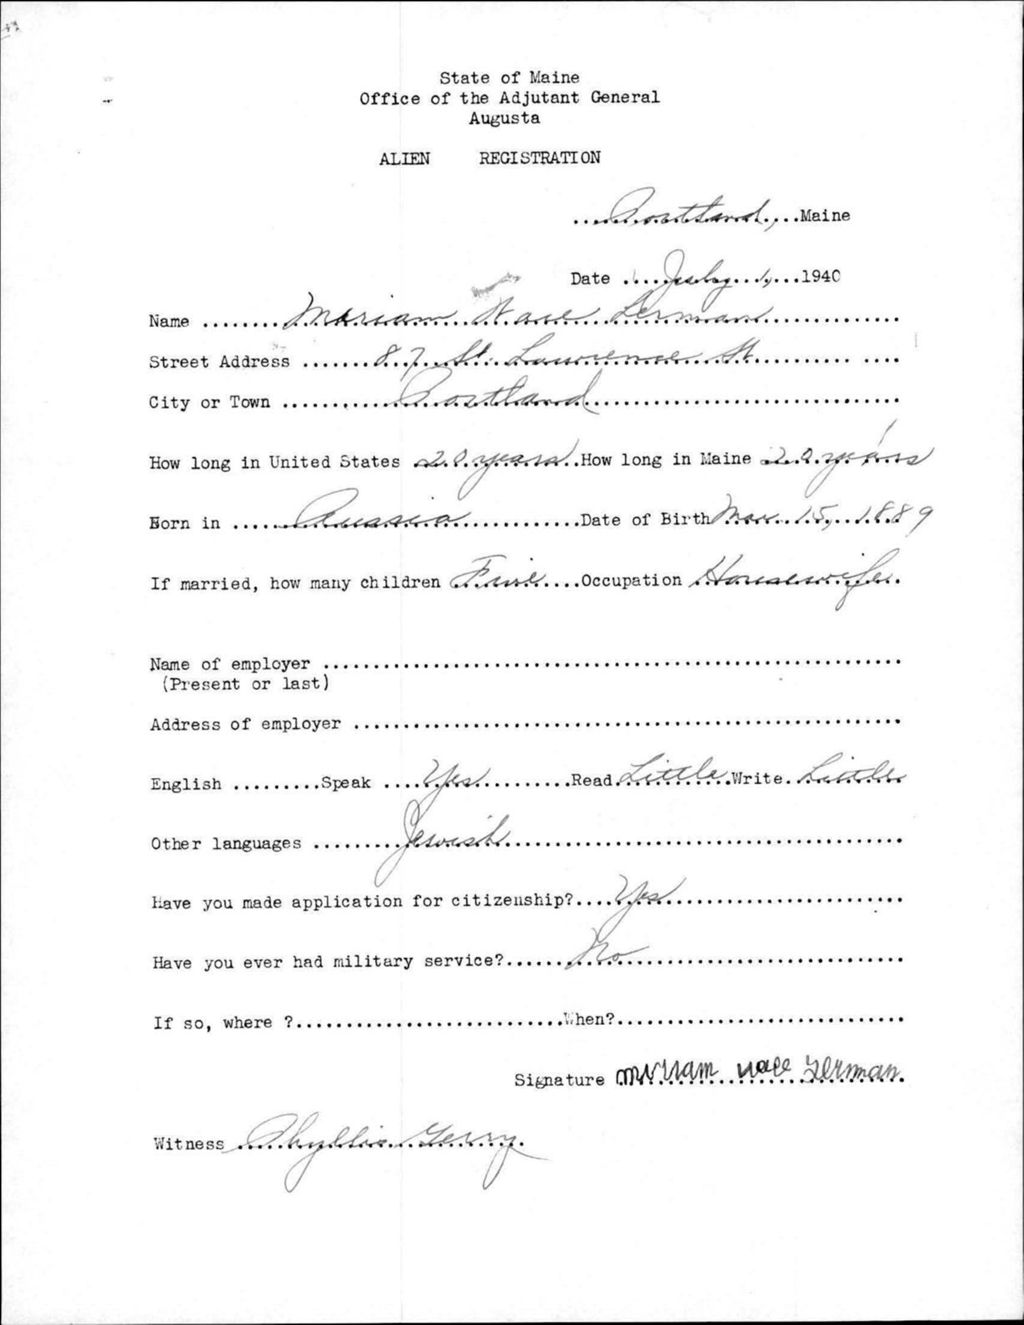 State of Maine
Office of the Adjutant General
Augusta
ALIEN REGISTRATION
Portland, Maine
Date July 1, 1940
Name Mariam Lerman
Street Address 87 St. Lawrence St
City or Town Portland
How long in United States 20 years How long in Maine 20 years
Born in Russia Date of Birth Mar. 15, 1889
If married, how many children Five Occupation Housewife
Name of employer
(Present or last)
Address of employer
English Speak Yes Read Little Write Little
Other languages Jewish
Have you made application for citizenship? Yes
Have you ever had military service? No
If so, where ? When?
Signature
Witness Phyllis Gerry